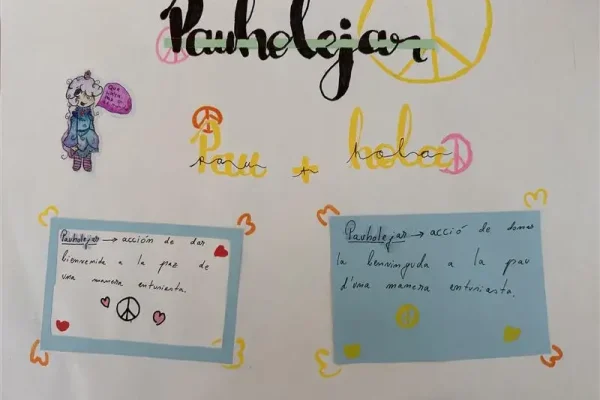 Pauholejar
Pau + hola
pau + hola
Pauholejar → acción de dar
bienvenida a la paz de
una manera entusiasta.
Pauholejar → acció de donar
la benvinguda a la pau
d'una manera entusiasta.